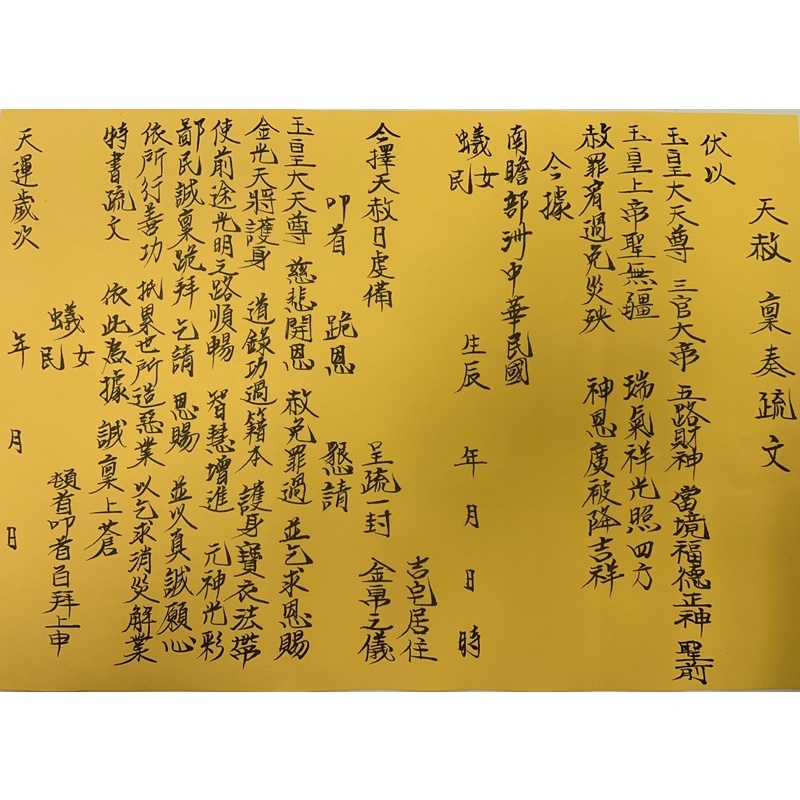 天赦稟奏疏文
伏以
玉皇大天尊 三官大帝 五路財神 當境福德正神 聖前
玉皇上帝聖無疆 瑞氣祥光照四方
赦罪宥過免災殃 神恩廣被降吉祥
今據
南瞻部洲中華民國
蟻女民 生辰 年 月 日 時
吉宅居住
今擇天赦日虔備 呈疏一封 金帛之儀
叩首 跪恩 懇請
玉皇大天尊 慈悲開恩 赦免罪過 並乞求恩賜
金光天將護身 道錄功過籍本 護身寶衣法帶
使前途光明之路順暢 智慧增進 元神光彩
鄙民誠稟跪拜 乞請 恩賜 並以真誠願心
依所行善功 抵累世所造惡業 以乞求消災解業
特書疏文 依此為據 誠稟上蒼
蟻女民 頓首叩首百拜上申
天運歲次 年 月 日